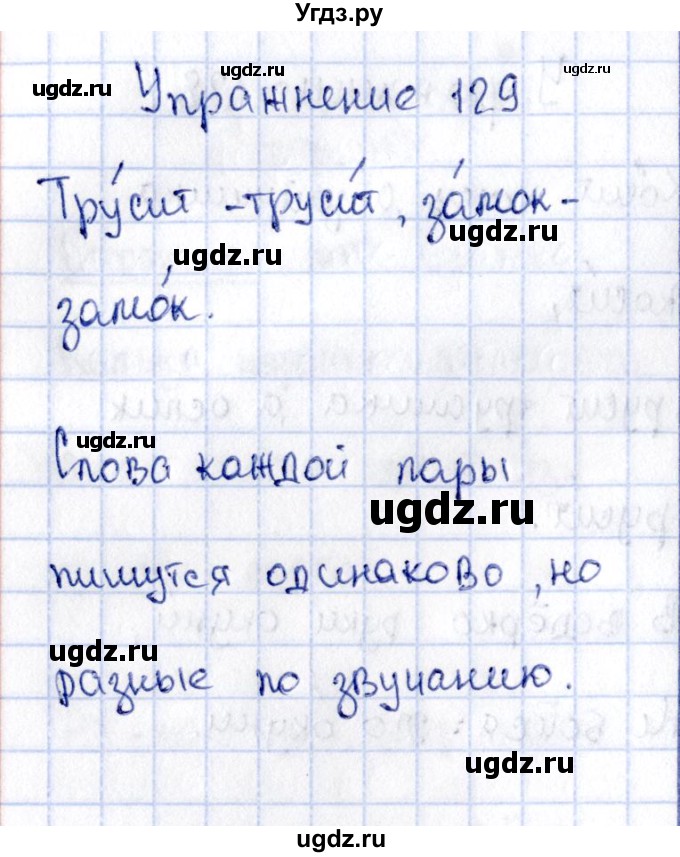 Угдз.ру
ugdz.ru ugdz.ru ugdz.ru
Упражнение 129
Тру́сит - труси́т, за́мок -
ugdz.ru ugdz.ru
замо́к.
ugdz.ru
Слова каждой пары
ugdz.ru
пишутся одинаково, но
ugdz.ru
разные по звучанию.
ugdz.ru
ugdz.ru